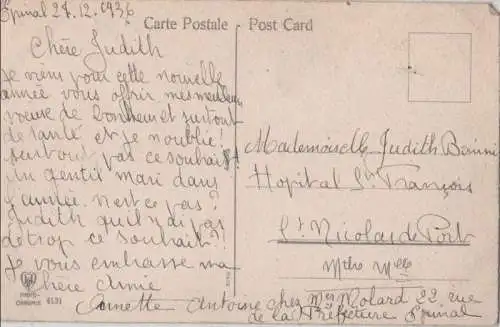 Epinal 27.12.1936
Carte Postale Post Card
Chère Judith
Je viens pour cette nouvelle
année vous offrir mes meilleurs
voeux de bonheur et surtout
de santé et je n'oublie!
surtout pas ce souhait
un gentil mari dans
l'année. n'est ce pas?
Judith qu'il n'ai pas
de trop ce souhait?!
Je vous embrasse ma
chère Amie
Annette Antoine chez Mr Molard 22 rue
de la Préfecture Epinal
Mademoiselle Judith
Hopital St François
St Nicolas de Port
Mthe Mlle
PHOTO-
CHROMIE